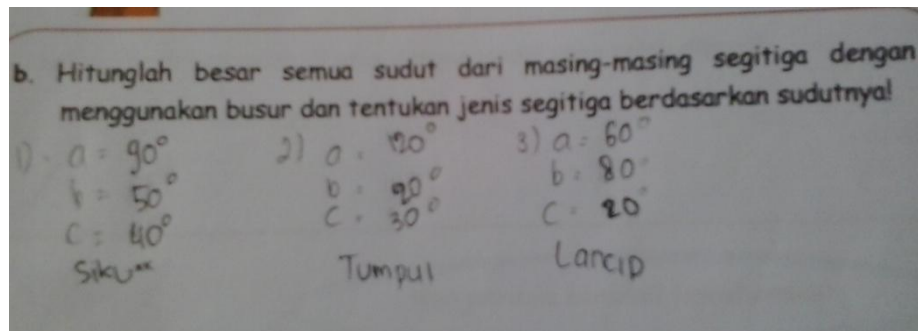 b. Hitunglah besar semua sudut dari masing-masing segitiga dengan
menggunakan busur dan tentukan jenis segitiga berdasarkan sudutnya!
1). a = 90° 2) a = 120° 3) a = 60°
b = 50° b = 20° b = 80°
c = 40° c = 30° c = 20°
Siku" Tumpul Lancip